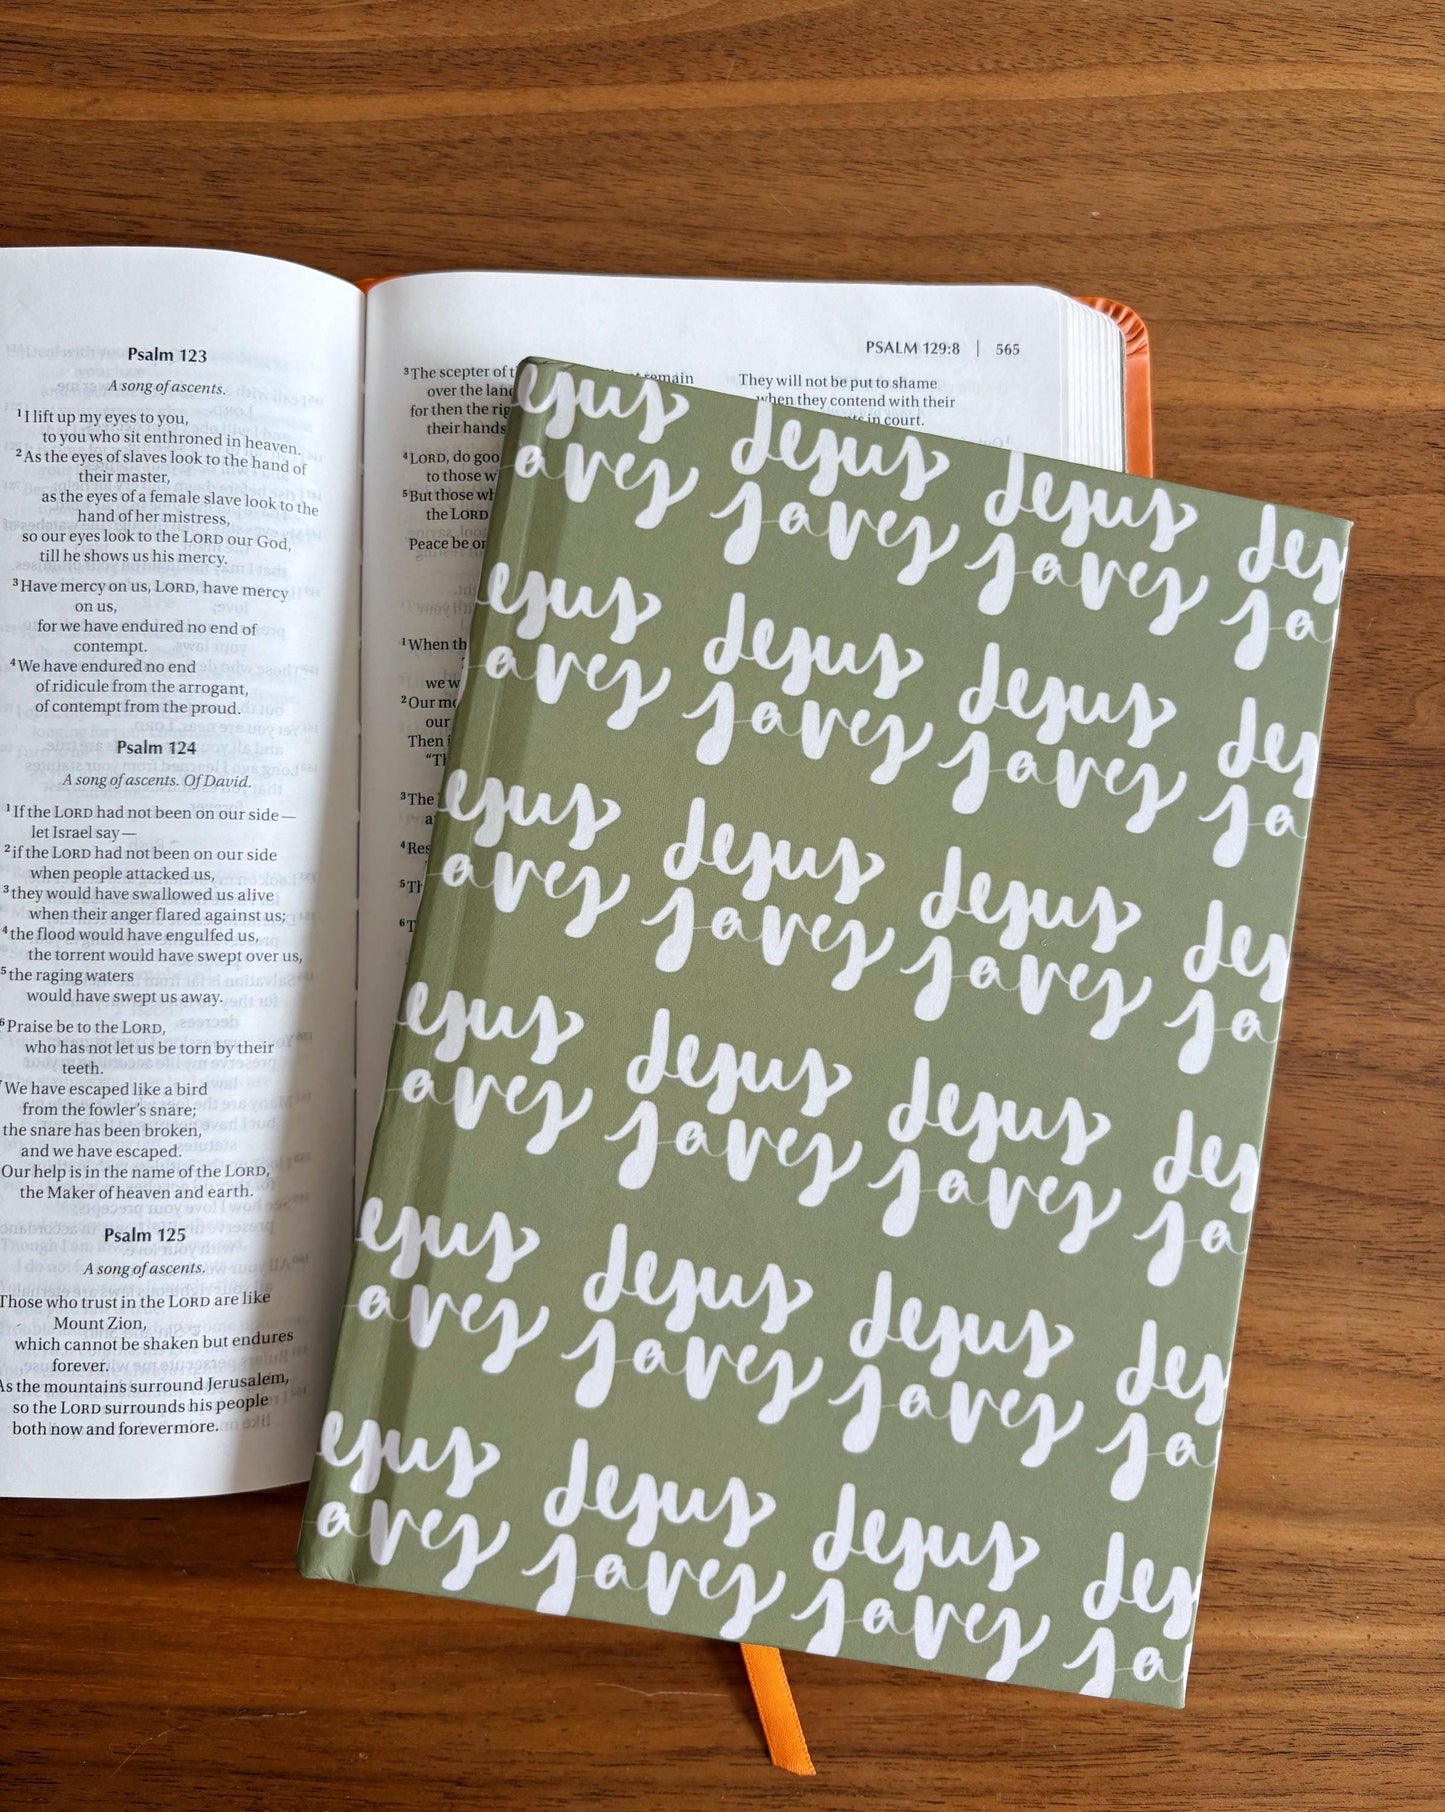 Psalm 123
A song of ascents.
1 I lift up my eyes to you,
to you who sit enthroned in heaven.
2 As the eyes of slaves look to the hand of
their master,
as the eyes of a female slave look to the
hand of her mistress,
so our eyes look to the LORD our God,
till he shows us his mercy.
3 Have mercy on us, LORD, have mercy
on us,
for we have endured no end of
contempt.
4 We have endured no end
of ridicule from the arrogant,
of contempt from the proud.
Psalm 124
A song of ascents. Of David.
1 If the LORD had not been on our side—
let Israel say—
2 if the LORD had not been on our side
when people attacked us,
3 they would have swallowed us alive
when their anger flared against us;
4 the flood would have engulfed us,
the torrent would have swept over us,
5 the raging waters
would have swept us away.
6 Praise be to the LORD,
who has not let us be torn by their
teeth.
7 We have escaped like a bird
from the fowler's snare;
the snare has been broken,
and we have escaped.
Our help is in the name of the LORD,
the Maker of heaven and earth.
Psalm 125
A song of ascents.
Those who trust in the LORD are like
Mount Zion,
which cannot be shaken but endures
forever.
As the mountains surround Jerusalem,
so the LORD surrounds his people
both now and forevermore.
PSALM 129:8 | 565
3 The scepter of remain
over the
for then the
their hands
4 LORD, do
to those
5 But those
the LORD
Peace be
1 When
we
2 Our
our
Then
3 The
4
5
6
They will not be put to shame
when they contend with their
in court.
esus Jesus Jesus Jes
aves saves saves sa
esus Jesus Jesus Jes
aves saves saves sa
esus Jesus Jesus Jes
aves saves saves sa
esus Jesus Jesus Jes
aves saves saves sa
esus Jesus Jesus Jes
aves saves saves sa
esus Jesus Jesus Jes
aves saves saves sa